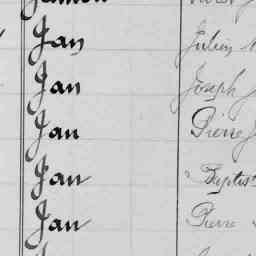 Jan Julien
Jan Joseph
Jan Pierre
Jan Baptist
Jan Pierre